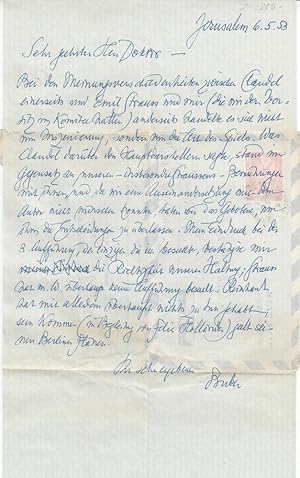 Jerusalem 6.5.53
Sehr geehrter Herr Doktor —
Bei den Meinungsverschiedenheiten zwischen Claudel
einerseits und Emil Strauss und mir (die wir den Vor-
sitz im Komitee hatten) anderseits handelte es sich nicht
um Inszenierung, sondern um die Art des Spiels. Was
Claudel darüber den Hauptdarstellern sagte, stand im
Gegensatz zu unseren – insbesondere Straussens – Bemühungen
mit ihnen, und da wir eine Auseinandersetzung mit dem
Autor nicht wünschen konnten, hatten wir das Gebotene, um
ihm die Entscheidungen zu überlassen. Mein Eindruck bei der
3. Aufführung, der einzigen die ich besuchte, bestätigte mir
die Richtigkeit unserer Haltung; Strauss
hat m. W. überhaupt keine Aufführung besucht. Reinhardt
hat mit alledem überhaupt nichts zu tun gehabt;
sein Kommen (in Begleitung von Felix Hollaender) galt sei-
nen Berliner Plänen.
Ihr sehr ergebener
Buber